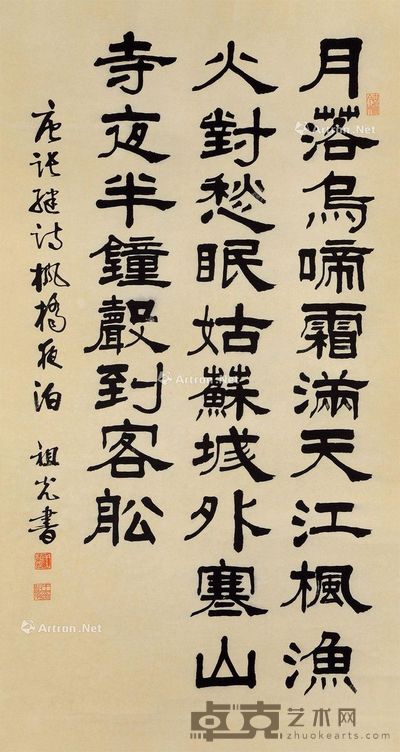 月落烏啼霜滿天江楓漁
火對愁眠姑蘇城外寒山
寺夜半鐘聲到客船
唐張繼詩楓橋夜泊 祖光書
Artron.Net
Artron.Net
Artron.Net
Artron.Net
卓克艺术网
zhuokearts.com